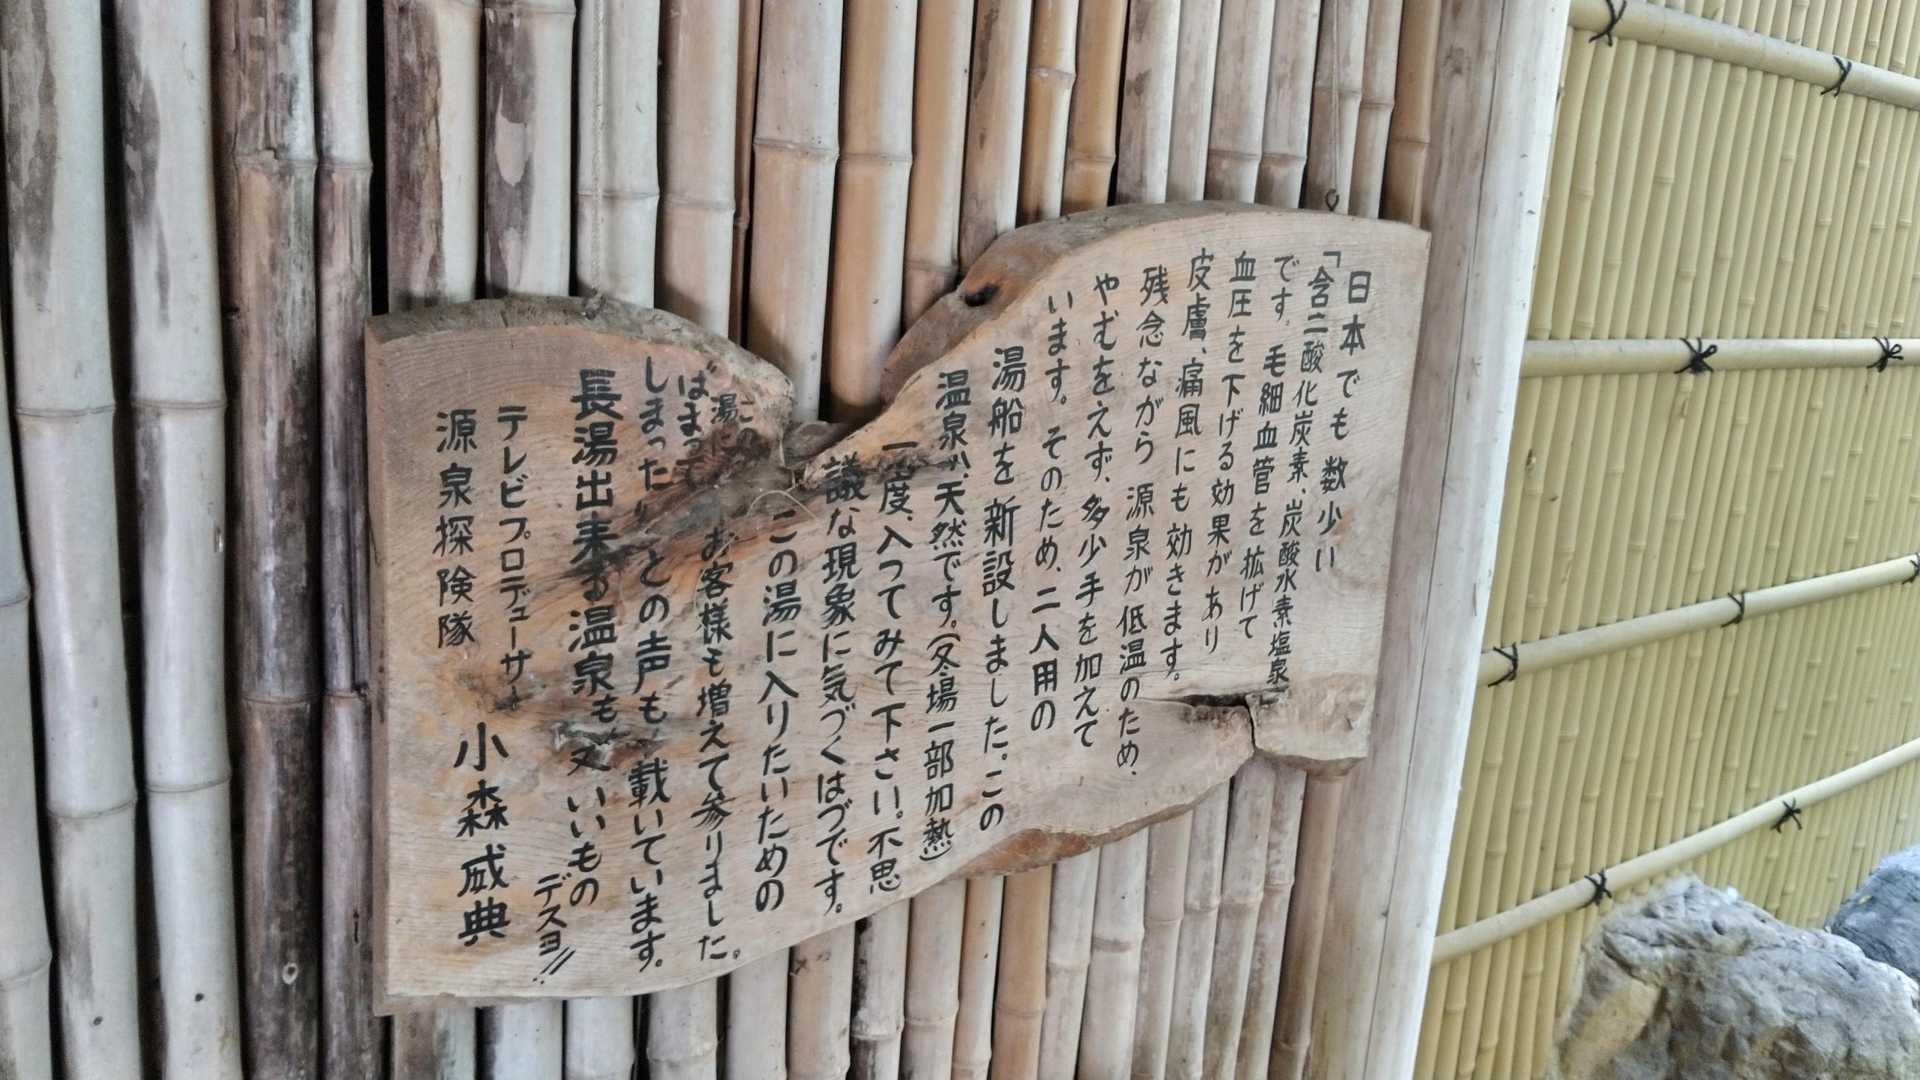 日本でも数少い
「含二酸化炭素、炭酸水素塩泉
です。毛細血管を拡げて
血圧を下げる効果があり
皮膚、痛風にも効きます。
残念ながら 源泉が低温のため、
やむをえず、多少手を加えて
います。そのため、二人用の
湯船を新設しました。この
温泉ハ天然です。(冬場一部加熱)
一度、入ってみて下さい。不思
議な現象に気づくはづです。
この湯に入りたいための
お客様も増えて参りました。
この
湯に
はまって
しまった〃との声も、載いています。
長湯出来る温泉も又いいもの
デスヨ!!
テレビプロデューサー
源泉探険隊 小森威典